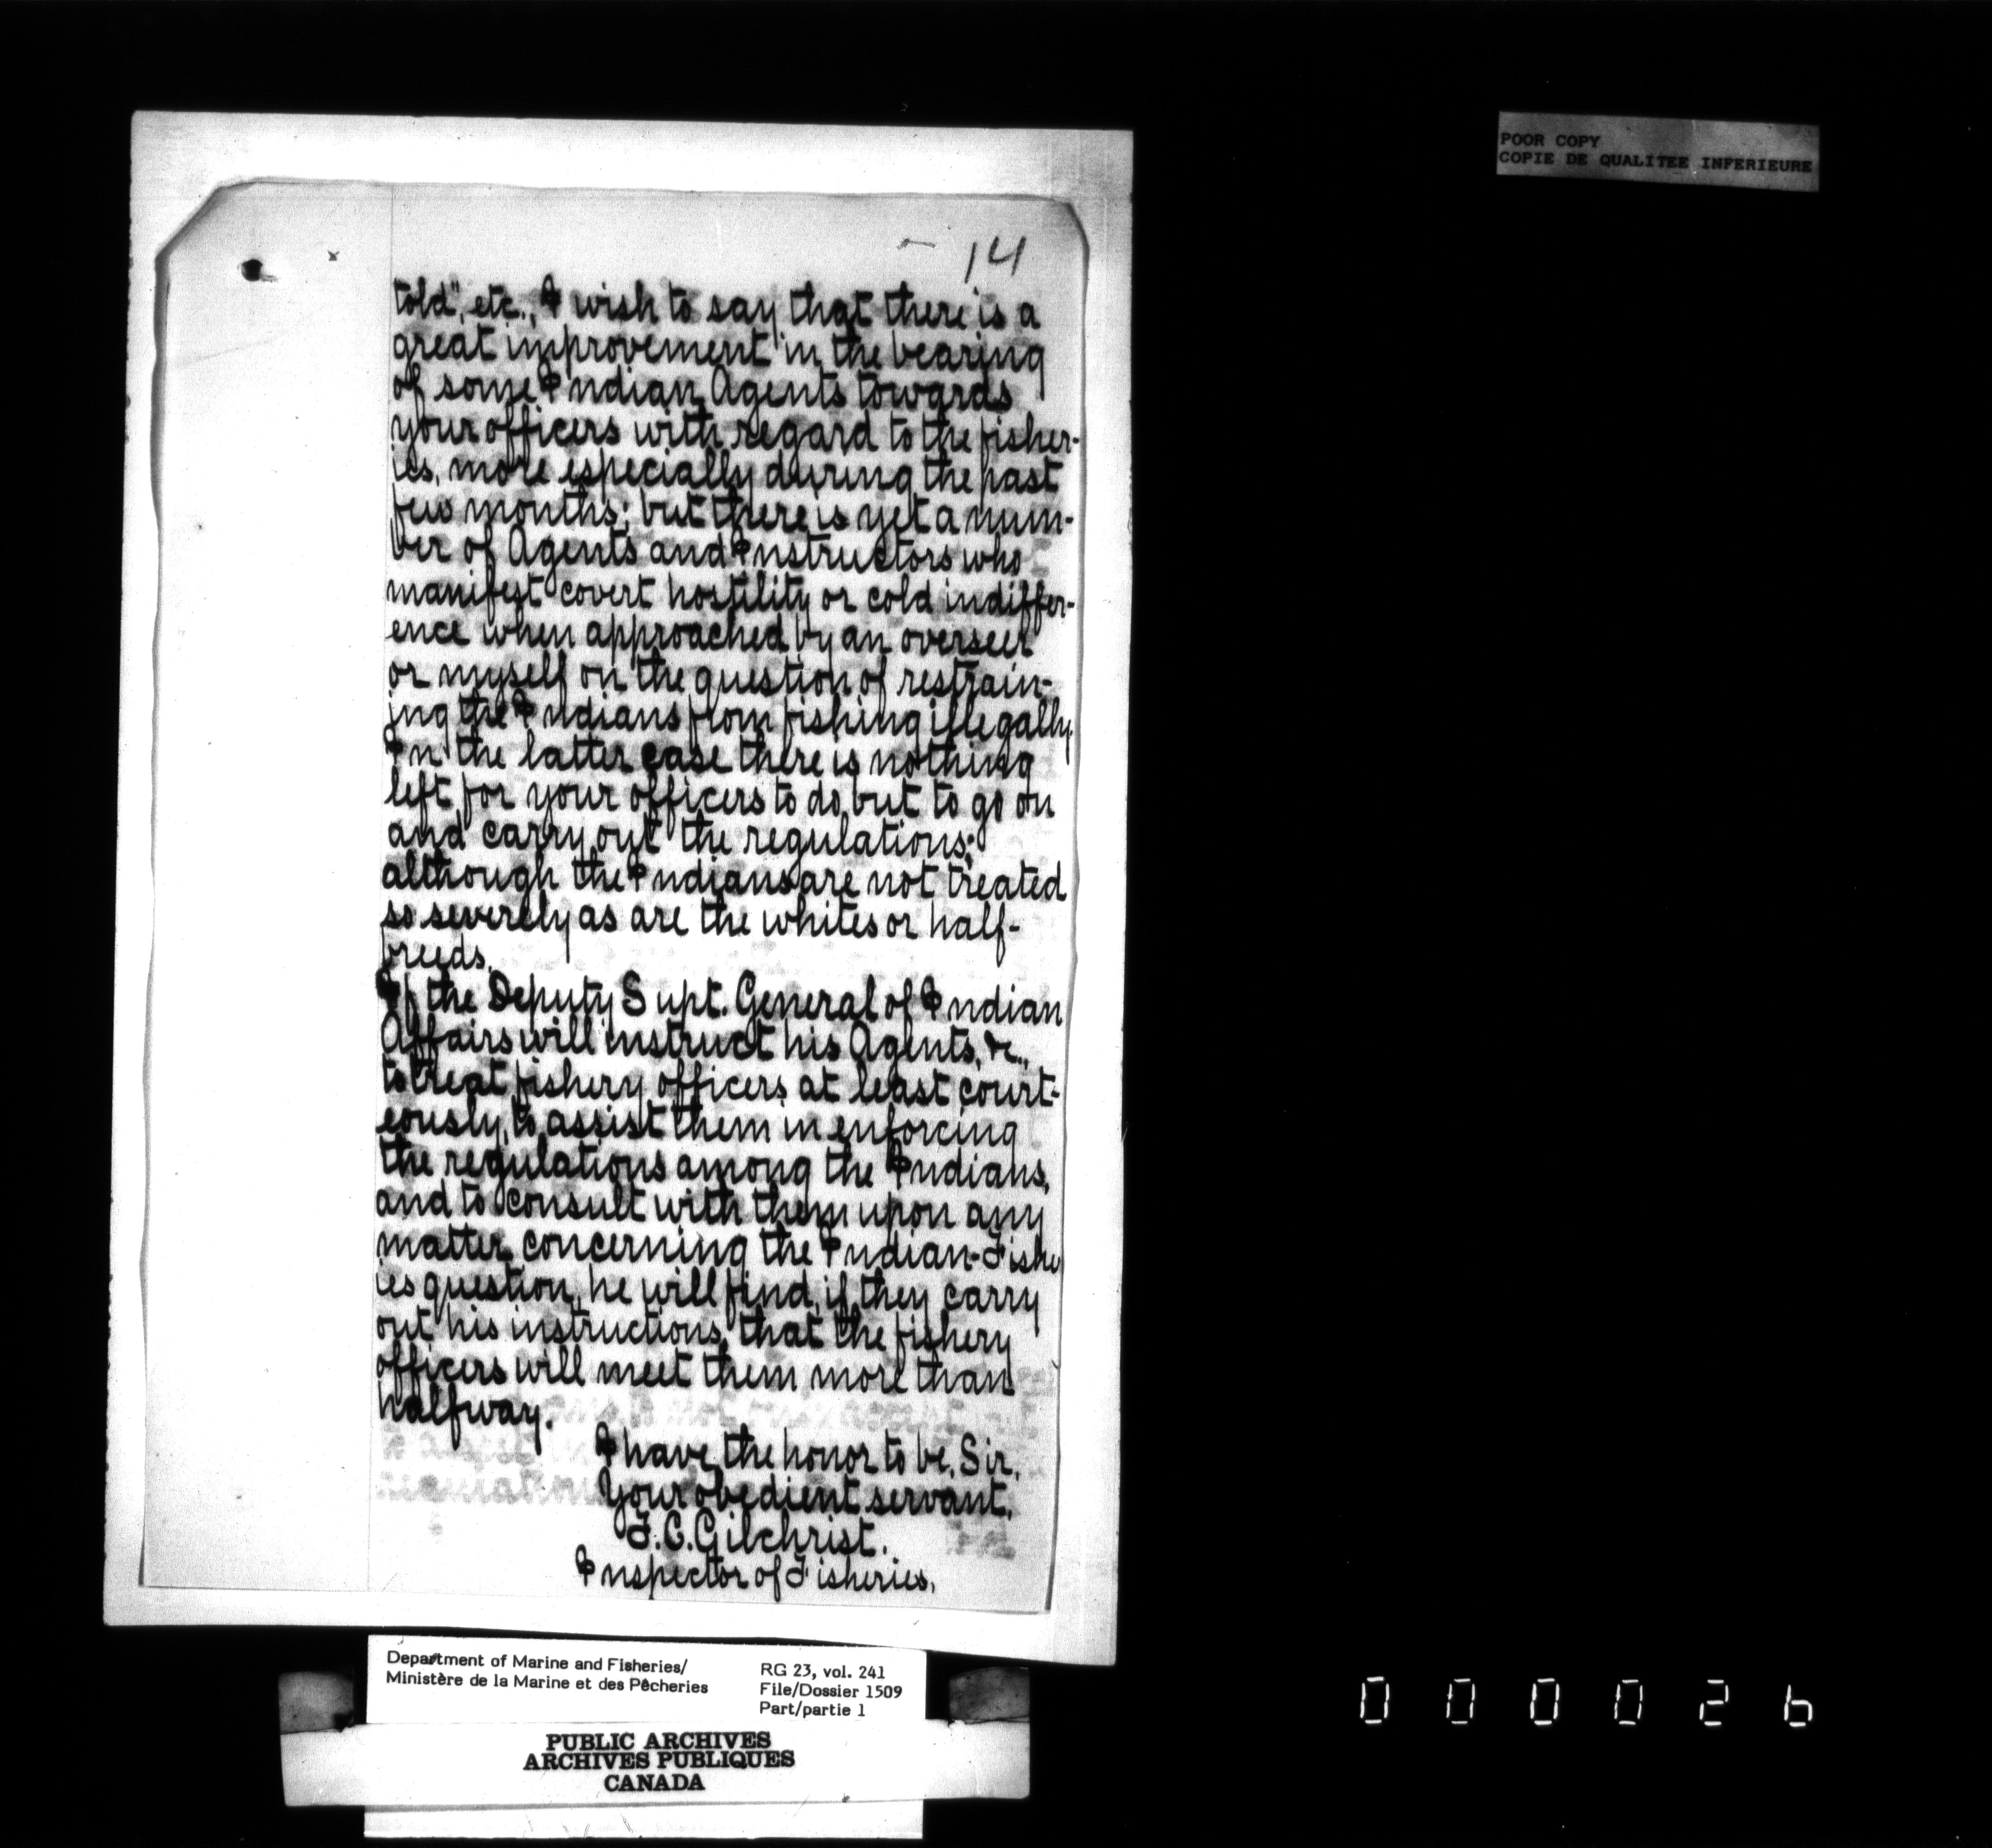 POOR COPY
COPIE DE QUALITEE INFERIEURE
14
told", etc., I wish to say that there is a
great improvement in the bearing
of some Indian Agents towards
your officers with regard to the fisher-
ies, more especially during the past
few months; but there is yet a num-
ber of Agents and Instructors who
manifest covert hostility or cold indiffer-
ence when approached by an overseer
or myself on the question of restrain-
ing the Indians from fishing illegally.
In the latter case there is nothing
left for your officers to do but to go on
and carry out the regulations;
although the Indians are not treated
so severely as are the whites or half-
breeds.
If the Deputy Supt. General of Indian
Affairs will instruct his Agents, &c.,
to treat fishery officers at least court-
eously, to assist them in enforcing
the regulations among the Indians,
and to consult with them upon any
matter concerning the Indian-Fisher
ies question, he will find, if they carry
out his instructions, that the fishery
officers will meet them more than
halfway.
I have the honor to be, Sir,
Your obedient servant,
F.C. Gilchrist.
Inspector of Fisheries.
Department of Marine and Fisheries/
Ministère de la Marine et des Pêcheries
RG 23, vol. 241
File/Dossier 1509
Part/partie 1
PUBLIC ARCHIVES
ARCHIVES PUBLIQUES
CANADA
000026